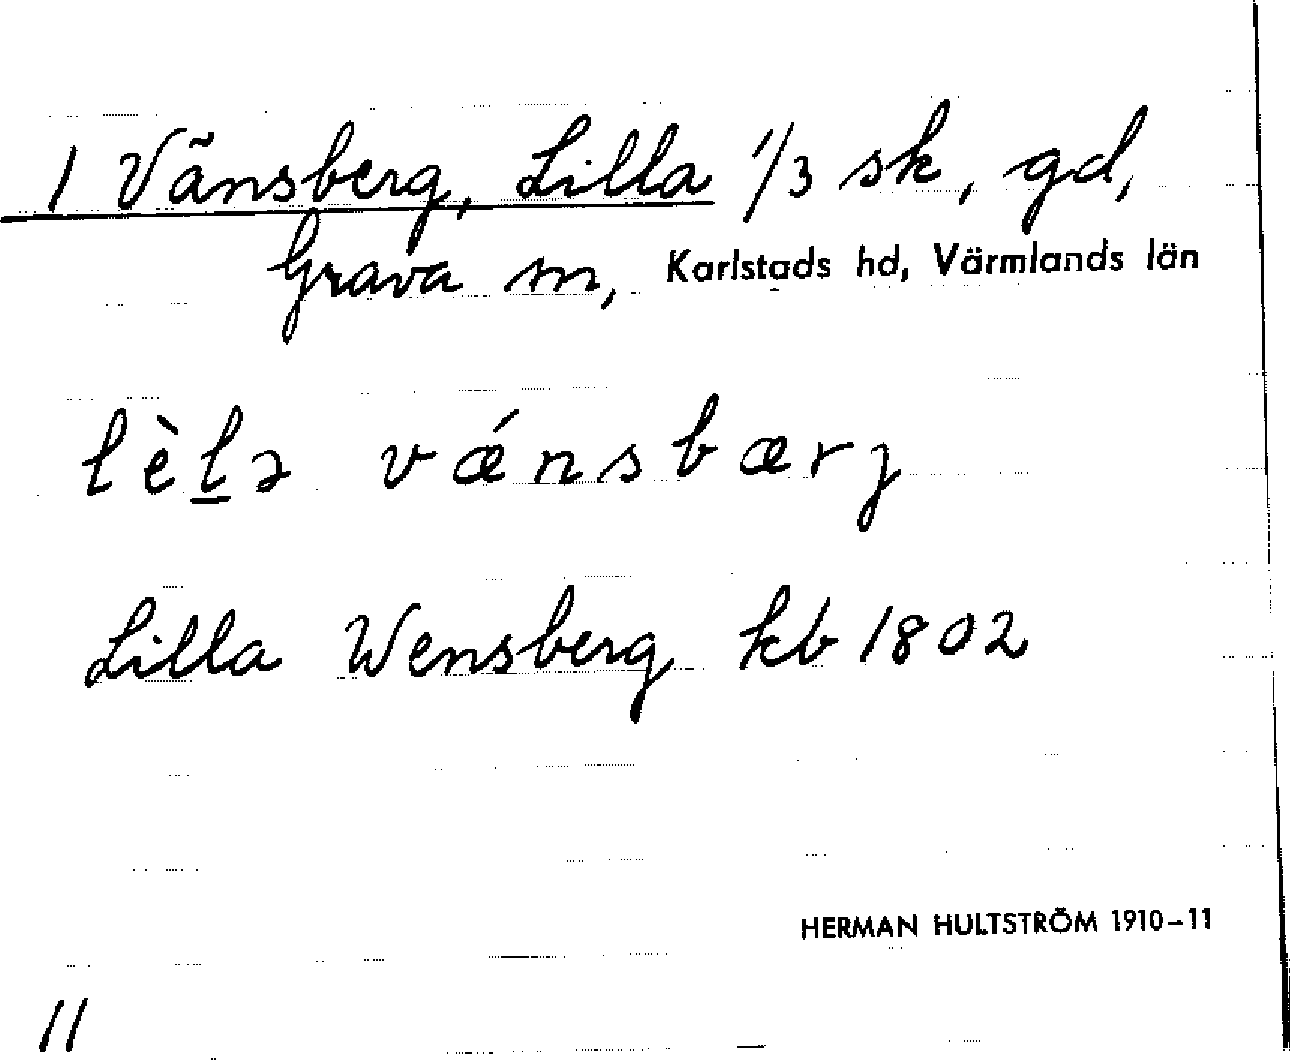 1 Vänsberg, Lilla 1/3 sk, gd,
Grava sn, Karlstads hd, Värmlands län
lèl̲ə vǽnsbærj
Lilla Wensberg kb 1802
HERMAN HULTSTRÖM 1910-11
11